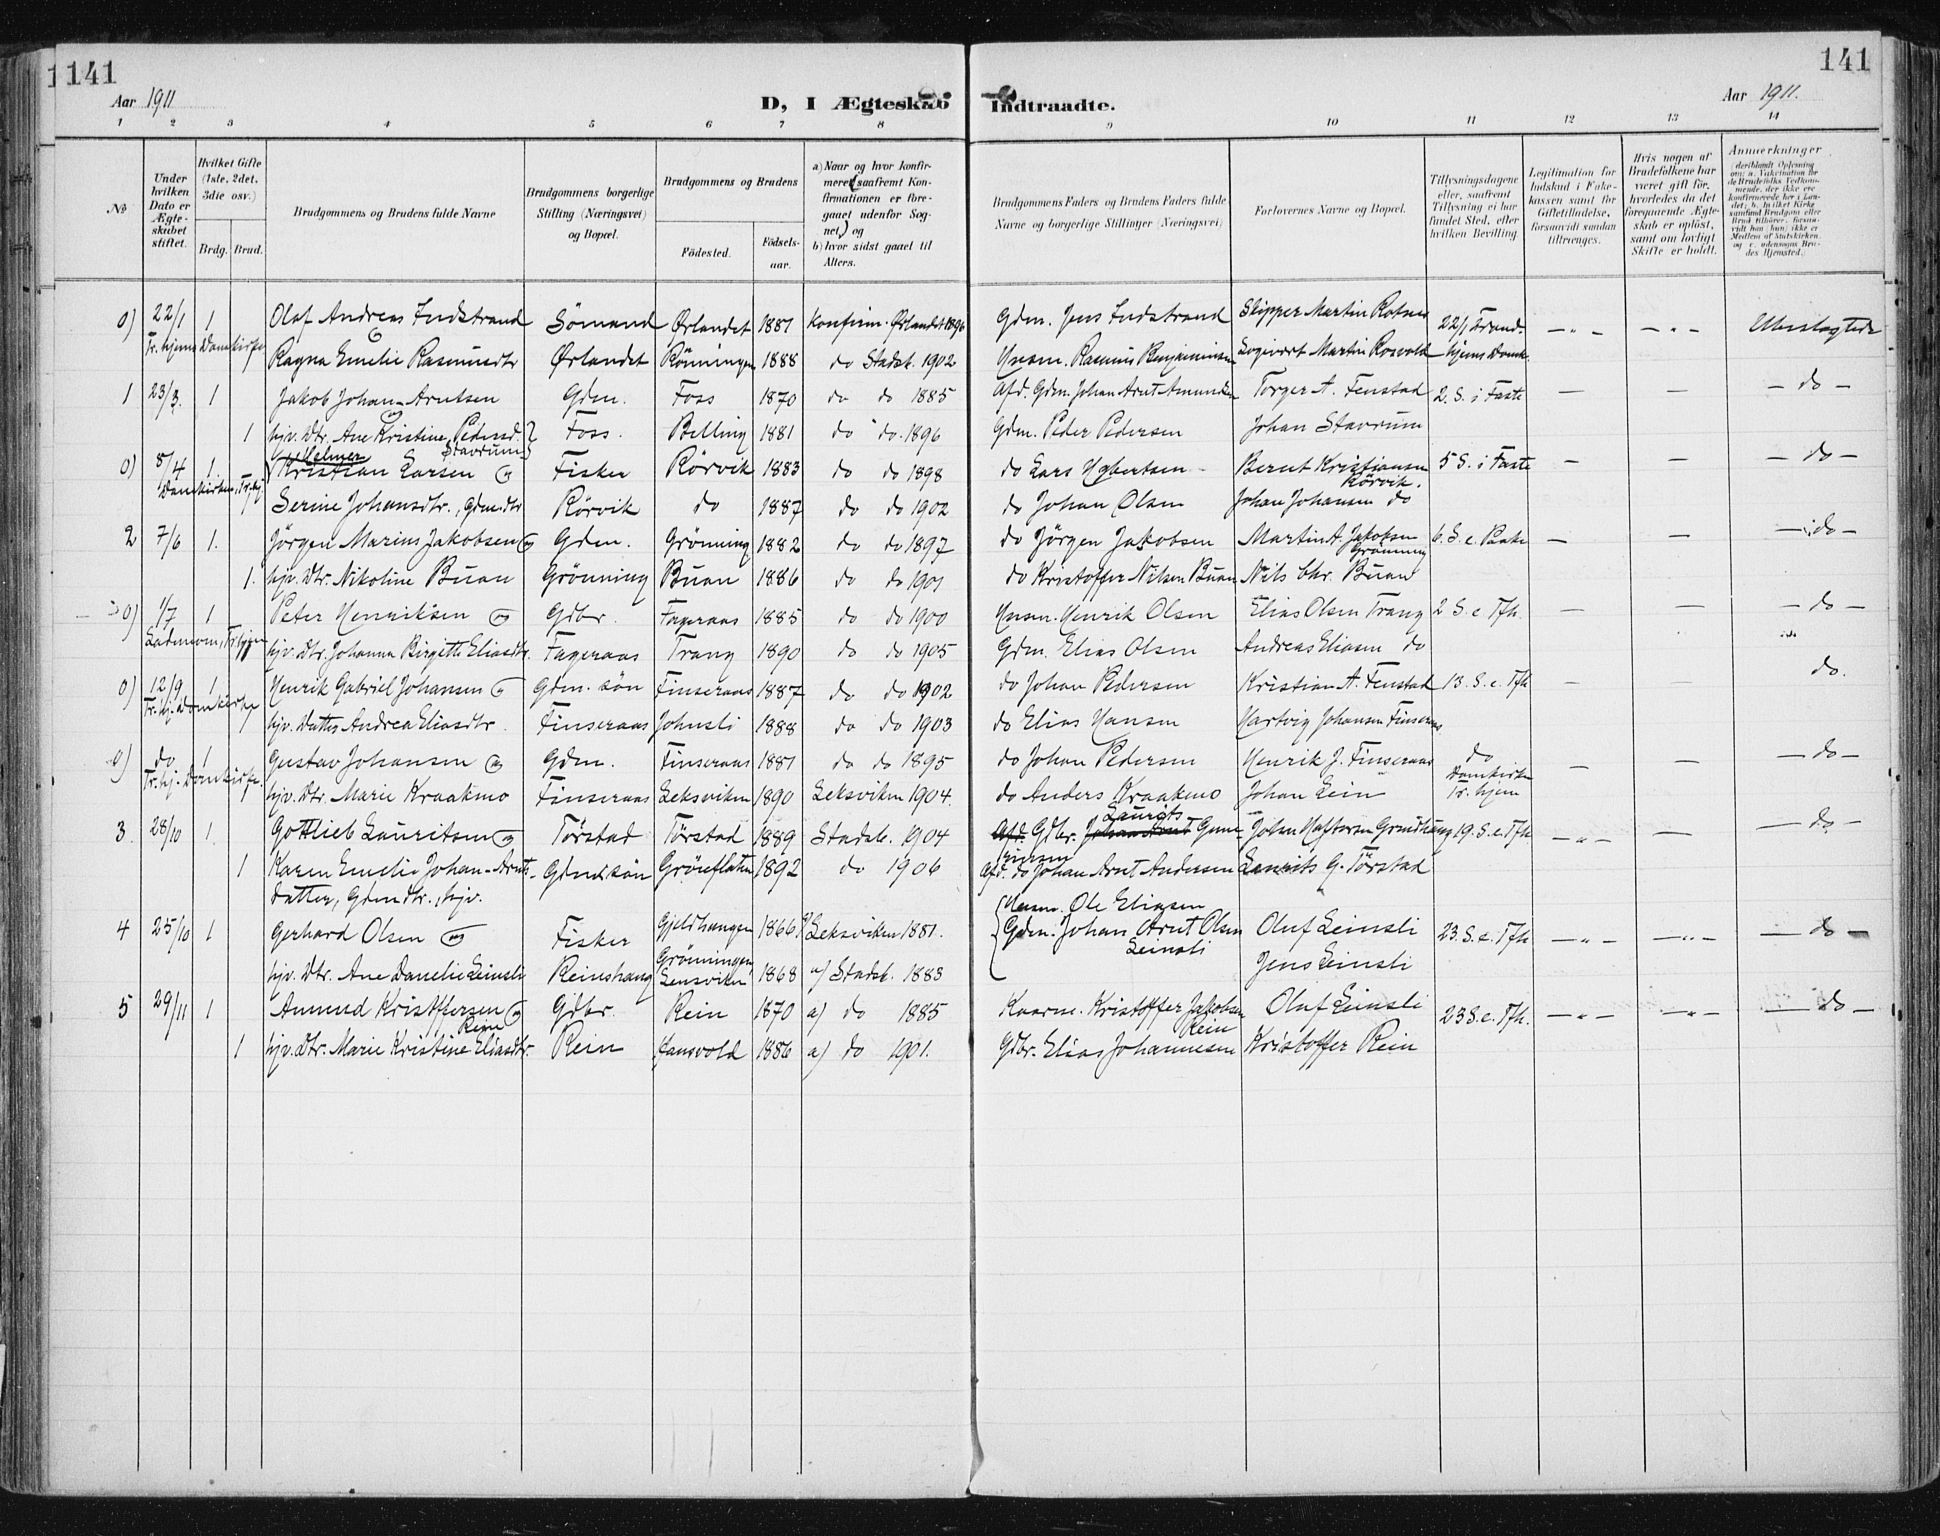 141
141
Aar 1911
D, I Ægteskab Indtraadte.
Aar 1911.
1 2 3 4 5 6 7 8 9 10 11 12 13 14
№
Under hvilken Dato er Ægteskabet stiftet.
Hvilket Gifte (1ste, 2det, 3die osv.)
Brdg. Brud.
Brudgommens og Brudens fulde Navne
Brudgommens borgerlige Stilling (Næringsvei) og Bopæl.
Brudgommens og Brudens
Fødested.
Fødselsaar.
a) Naar og hvor konfirmeret (saafremt Konfirmationen er foregaaet udenfor Sognet) og
b) hvor sidst gaaet til Alters.
Brudgommens Faders og Brudens Faders fulde Navne og borgerlige Stillinger (Næringsvei)
Forlovernes Navne og Bopæl.
Tillysningsdagene eller, saafremt Tillysning ei har fundet Sted, efter hvilken Bevilling.
Legitimation for Indskud i Enkekassen samt for Giftetilladelse, forsaavidt saadan tiltrænges.
Hvis nogen af Brudefolkene har været gift før, hvorledes da det foregaaende Ægteskab er opløst, samt om lovligt Skifte er holdt.
Anmærkninger
0) 22/1 1 Olaf Andreas Indstrand Sömand Ørlandet 1881 Konfirm. Ørlandet 1896 Gdm. Jens Indstrand Skipper Martin Rotnes 22/1 Trond- — " — — " — Ubeslægtede
Tr.hjems Domkirke 1 Ragna Emelie Rasmusdtr Ørlandet Rönningen 1888 do Stadsb. 1902 Husm. Rasmus Benjaminsen Logivært Martin Rosvold hjems Domk.
1 23/3. 1 Jakob Johan-Arntsen Gdm. Foss 1870 do do 1885 Afd. Gdm. Johan Arnt Amundsen Torger A. Fenstad 2. S. i Faste — — — do —
1 hjv. Dtr. Ane Kristine Pedersd. Stavrum Foss. Belling 1881 do do. 1896 Gdm. Peder Pedersen Johan Stavrum
0) 8/4 1 Helmer Kristian Larsen og Fisker Rörvik 1883 do do 1898 do Lars Egbertsen Bernt Kristiansen Rörvik. 5 S. i Faste — — — do —
Domkirken, Tr.hj. 1 Serine Johansdtr., Gdm.dtr Rörvik do 1887 do do 1902 do Johan Olsen Johan Johansen do
2 7/6 1. Jörgen Marius Jakobsen og Gdm. Grönning 1882 do do 1897 do Jörgen Jakobsen Martin A. Jakobsen Grönning 6. S. e. Paaske — — — do —
1. hjv. Dtr. Nikoline Buan Grönning Buan 1886 do do 1901 do Kristoffer Nilsen Buan Nils Chr. Buan
0) 1/7 1 Peter Henriksen og Gdbr. Fageraas 1885 do do 1900 Husm. Henrik Olsen Elias Olsen Trang 2 S. e. Tfh. — — — do —
Lademoen, Tr.hjem hjv. Dtr. Johanna Birgitte Eliasdtr. Fageraas Trang 1890 do do 1905 Gdm. Elias Olsen Andreas Eliasen do
0) 12/9 1 Henrik Gabriel Johansen og Gdm. sön Finseraas 1887 do do 1902 do Johan Pedersen Kristian A. Fenstad 13. S. e. Tfh — — do.
Tr.hj. Domkirke 1 hjv. Datter Andrea Eliasdtr. Finseraas Johnsli 1888 do do 1903 do Elias Hansen Hartvig Johansen Finseraas
0) do 1 Gustav Johansen og Gdm. Finseraas 1881 do do 1895 do Johan Pedersen Henrik J. Finseraas do Domkirken Tr.hjem — — — do —
Tr.hj. Domkirke. hjv. Dtr. Marie Kraakmo Finseraas Leksviken 1890 Leksviken 1904. do Anders Kraakmo Johan Lein
3. 28/10 1. Gottlieb Lauritsen og Törstad Törstad 1889 Stadsb. 1904 Afd. Gdbr. Johan Arnt Laurits Johan Grindhaug 19. S. e. Tfh. — " — — — do —
1 Karen Emelie Johan-Arnts- Gdmd.sön Gröneflaten 1892 do 1906 Afd. do Johan Arnt Andersen Laurits G. Törstad
datter, Gdm.dtr., hjv.
4 25/10 1 Gerhard Olsen og Fisker Gjeldhaugen 1866 Leksviken 1881. Husm. Ole Eliasen Oluf Leinsli 23. S. e. Tfh. — " — — " — — do —
Gdm. Johan Arnt Olsen Leinsli
hjv. Dtr. Ane Danelie Leinsli Reinshaug Grönningen Lensviken 1868 a) Stadsb. 1883 Jens Leinsli
5 29/11 1 Amund Kristoffersen Rein og Gdbr. Rein 1870 a) do 1885 Kaarm. Kristoffer Jakobsen Rein Oluf Leinsli 23 S. e. Tfh. — " — — " — — do —
1 hjv. Dtr. Marie Kristine Eliasdtr. Rein Fansvold 1886 a) do 1901. Gdbr. Elias Johannesen Kristoffer Rein